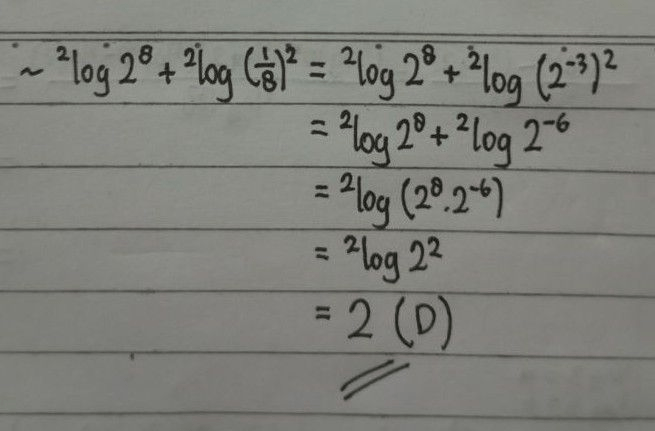 ~ ²log 2⁸ + ²log (1/8)² = ²log 2⁸ + ²log (2⁻³)²
= ²log 2⁸ + ²log 2⁻⁶
= ²log (2⁸ . 2⁻⁶)
= ²log 2²
= 2 (D)